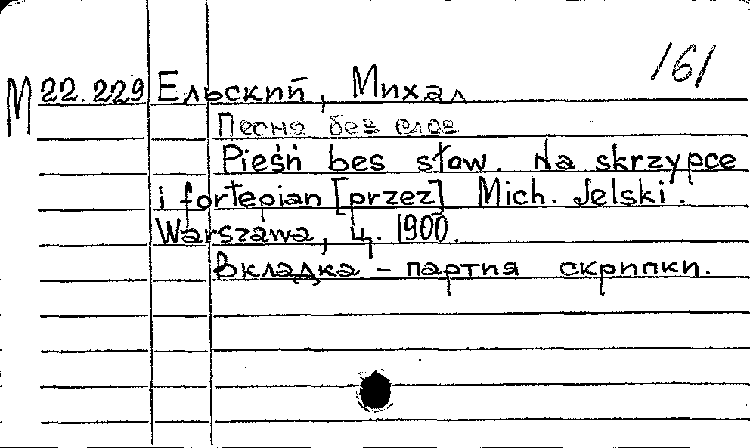 161
М 22.229 Ельский, Михал
Песня без слов
Pieśń bes słow. Na skrzypce
i fortepian [przez] Mich. Jelski.
Warszawa, ц. 1900.
Вкладка – партия скрипки.